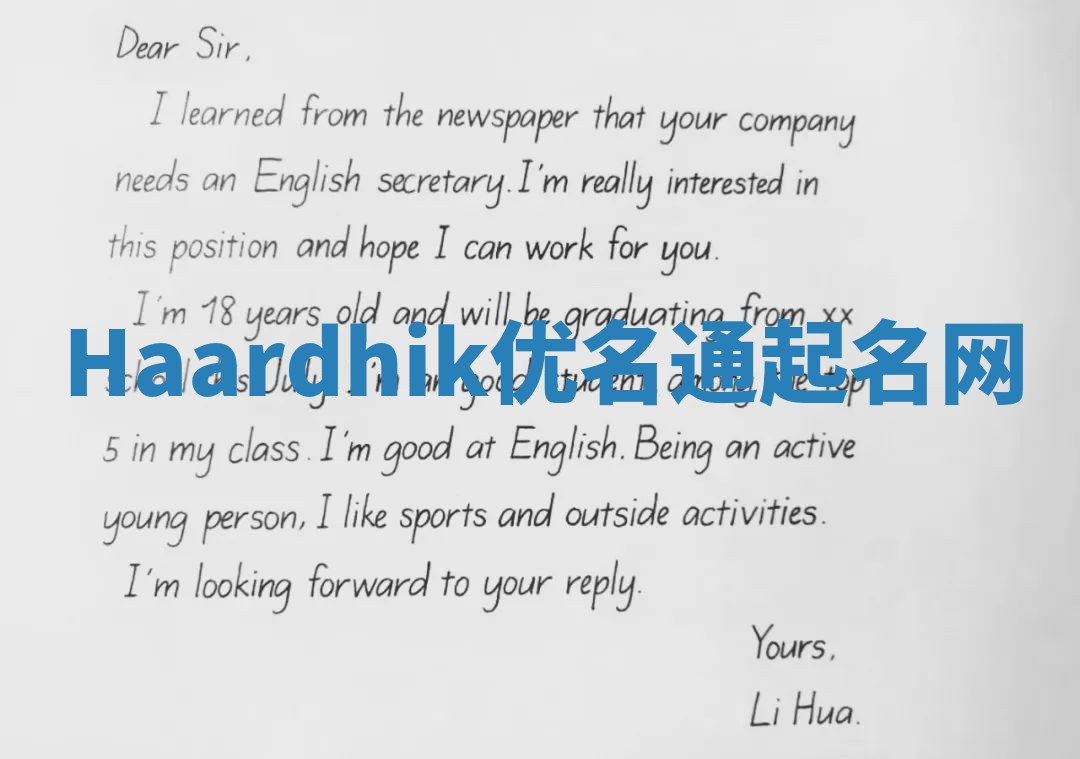 Dear Sir,
I learned from the newspaper that your company
needs an English secretary. I'm really interested in
this position and hope I can work for you.
I'm 18 years old and will be graduating from xx
Haardhik优名通起名网
school this July. I'm an good student among the top
5 in my class. I'm good at English. Being an active
young person, I like sports and outside activities.
I'm looking forward to your reply.
Yours,
Li Hua.